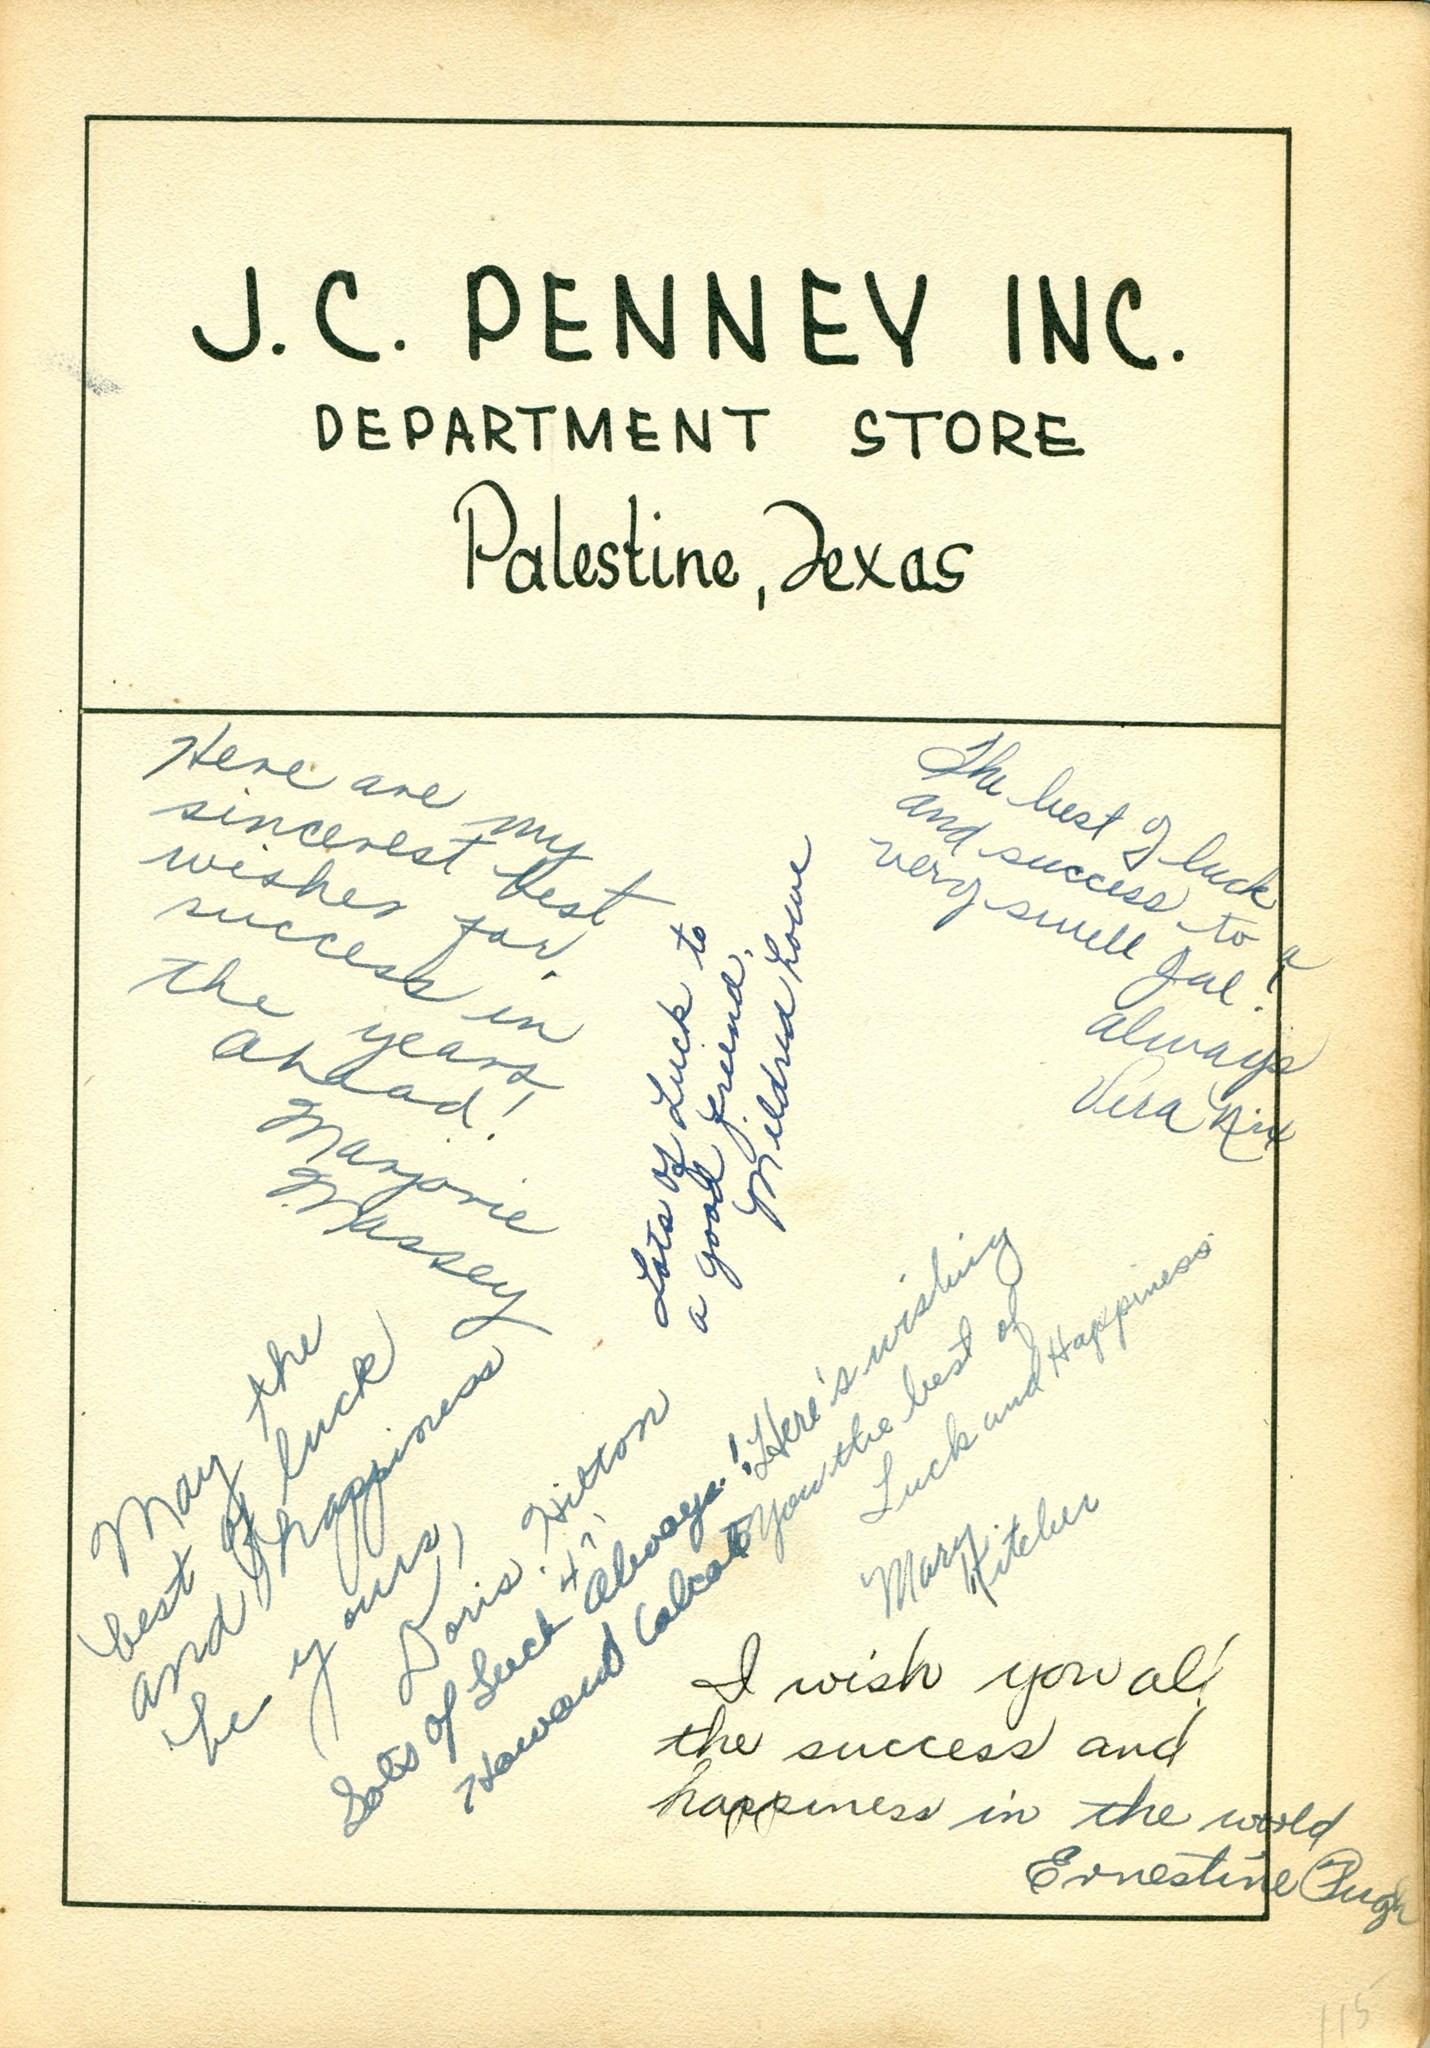 J.C. PENNEY INC.
DEPARTMENT STORE
Palestine, Texas
Here are my
sincerest best
wishes for
success in
the years
ahead!
Marjorie
Massey
The best of luck
and success to a
very swell gal!
always
Vera Nix
Lots of Luck to
a good friend.
Mildred Lowe
May the
best of luck
and happiness
be yours,
Doris Hilton
'47
Lots of Luck Always!
Howard
Here's wishing
you the best of
Luck and Happiness
Mary
Kitchen
I wish you all
the success and
happiness in the world
Ernestine Pugh
115